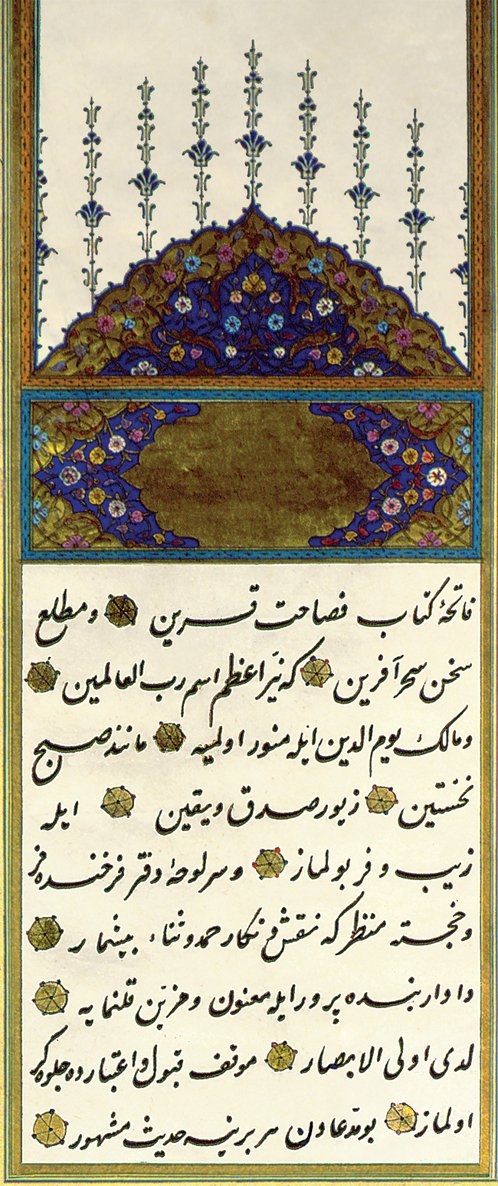 فاتحهٔ کتاب فصاحت قرین ومطلع
سخن سحر آفرین که نیر اعظم اسم رب العالمین
ومالک یوم الدین ایله منور اولمیه مانند صبح
نخستین زیور صدق ویقین ایله
زیب وفر بولماز وسرلوحهٔ دفتر فرخنده فر
وخجسته منظر که نقش ونکار حمد وثناء بیشمار
داوار بنده پرور ایله معنون ومزین قلنمایه
لدی اولی الابصار موقف قبول واعتبارده جلوه کر
اولماز بو مدعانون هر برینه حدیث مشهور